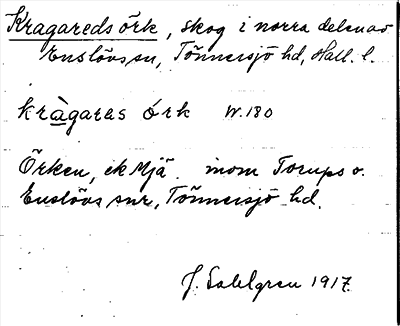 Kragareds örk, skog i norra delen av
Enslövs sn, Tönnersjö hd, Hall. l.
kràgaras örk W. 180
Örken, ek Mjä inom Torups o.
Enslövs snr, Tönnersjö hd.
J. Sahlgren 1917.